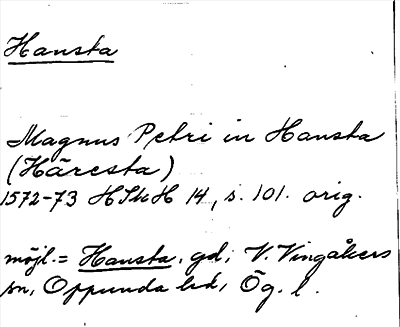 Hansta
Magnus Petri in Hansta
(Häresta)
1572-73 HSkH 14, s. 101. orig.
möjl. = Hansta, gd, V. Vingåkers
sn, Oppunda hd, Ög. l.